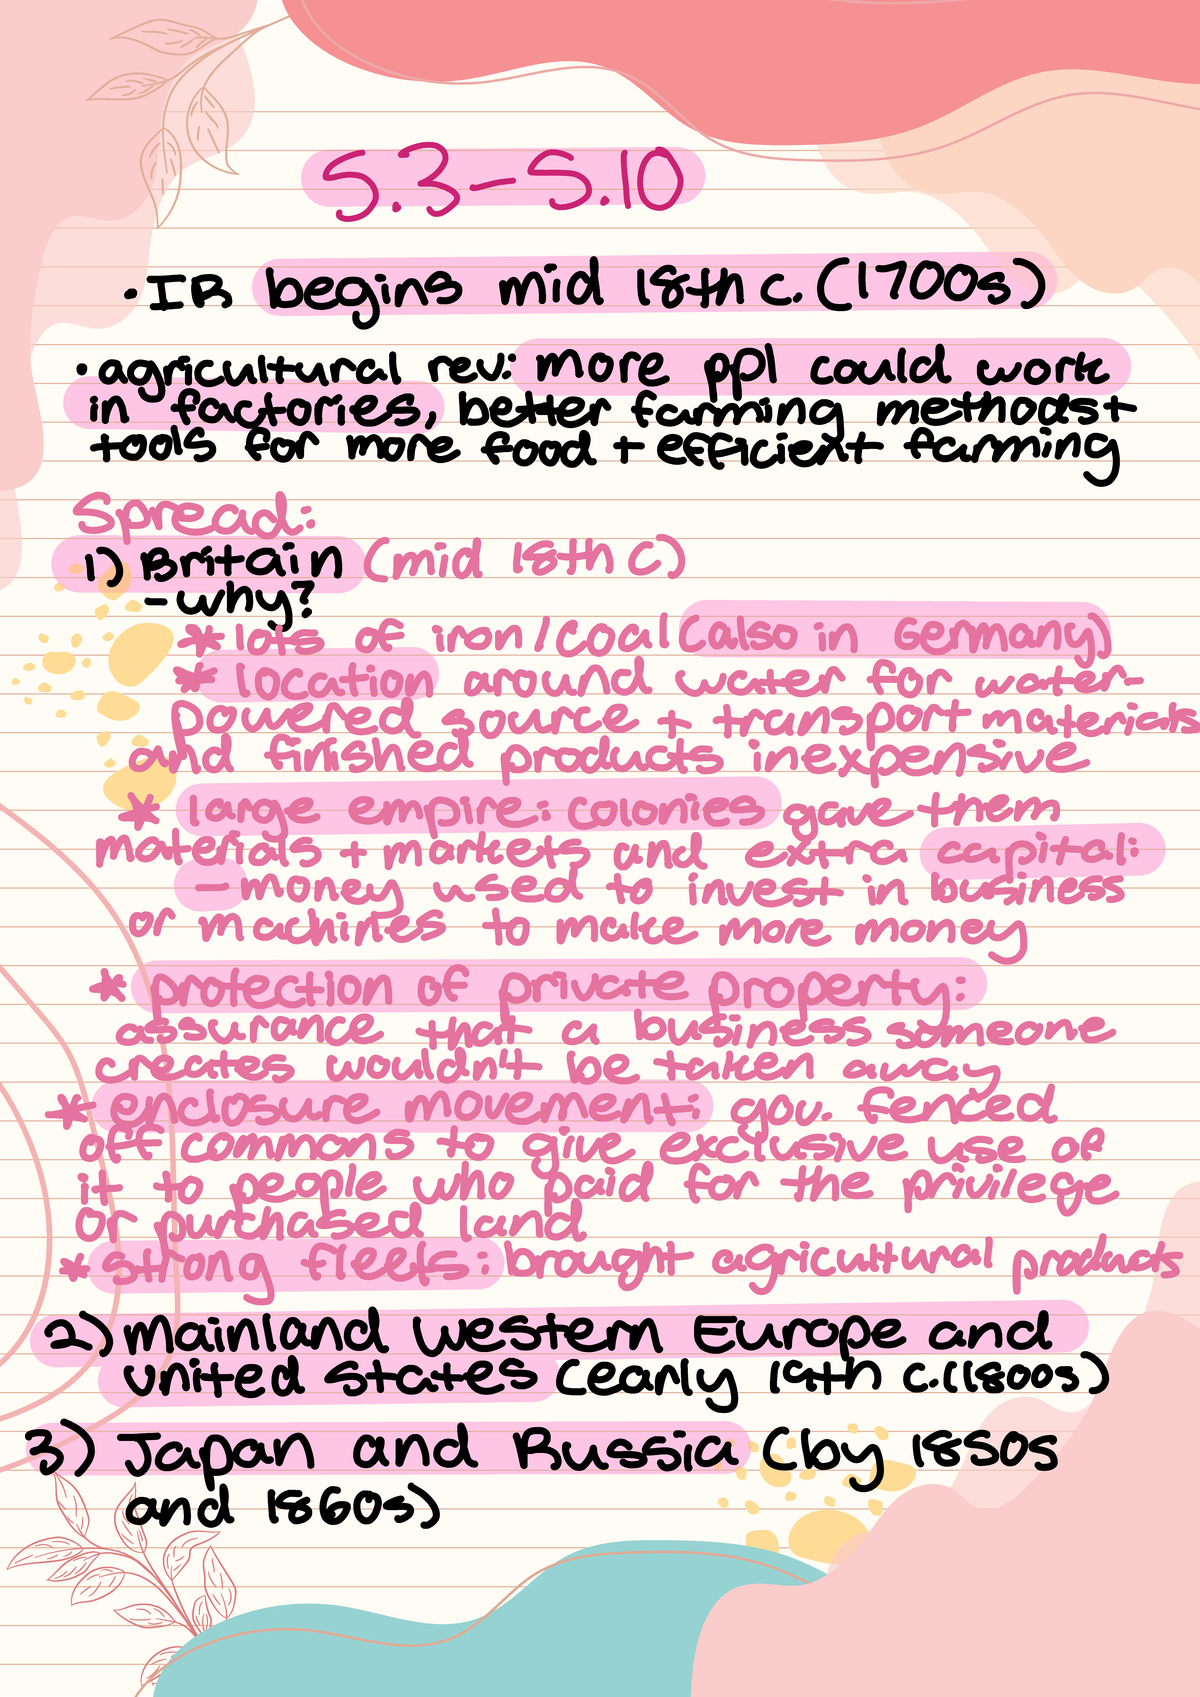 5.3-5.10
• IR begins mid 18th c. (1700s)
• agricultural rev: more ppl could work
in factories, better farming methods +
tools for more food + efficient farming
Spread:
1) Britain (mid 18th c)
- why?
* lots of iron/coal (also in Germany)
* location around water for water-
powered source + transport materials
and finished products inexpensive
* large empire: colonies gave them
materials + markets and extra capital:
- money used to invest in business
or machines to make more money
* protection of private property:
assurance that a business someone
creates wouldn't be taken away
* enclosure movement: gov. fenced
off commons to give exclusive use of
it to people who paid for the privilege
or purchased land
* strong fleets: brought agricultural products
2) Mainland Western Europe and
United States (early 19th c. (1800s)
3) Japan and Russia (by 1850s
and 1860s)